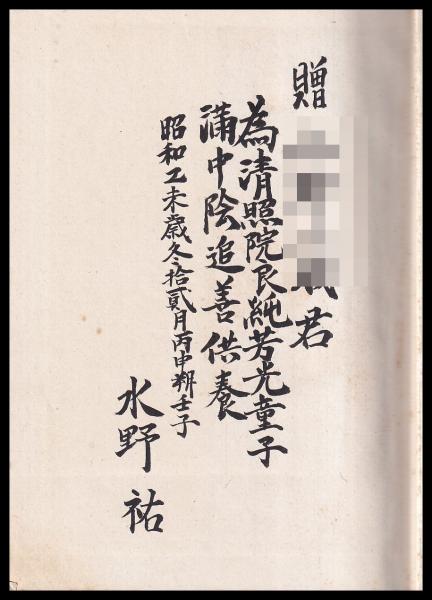 贈 君
為清照院良純芳光童子
満中陰追善供養
昭和乙未歳冬拾貳月丙申朔壬子
水野祐